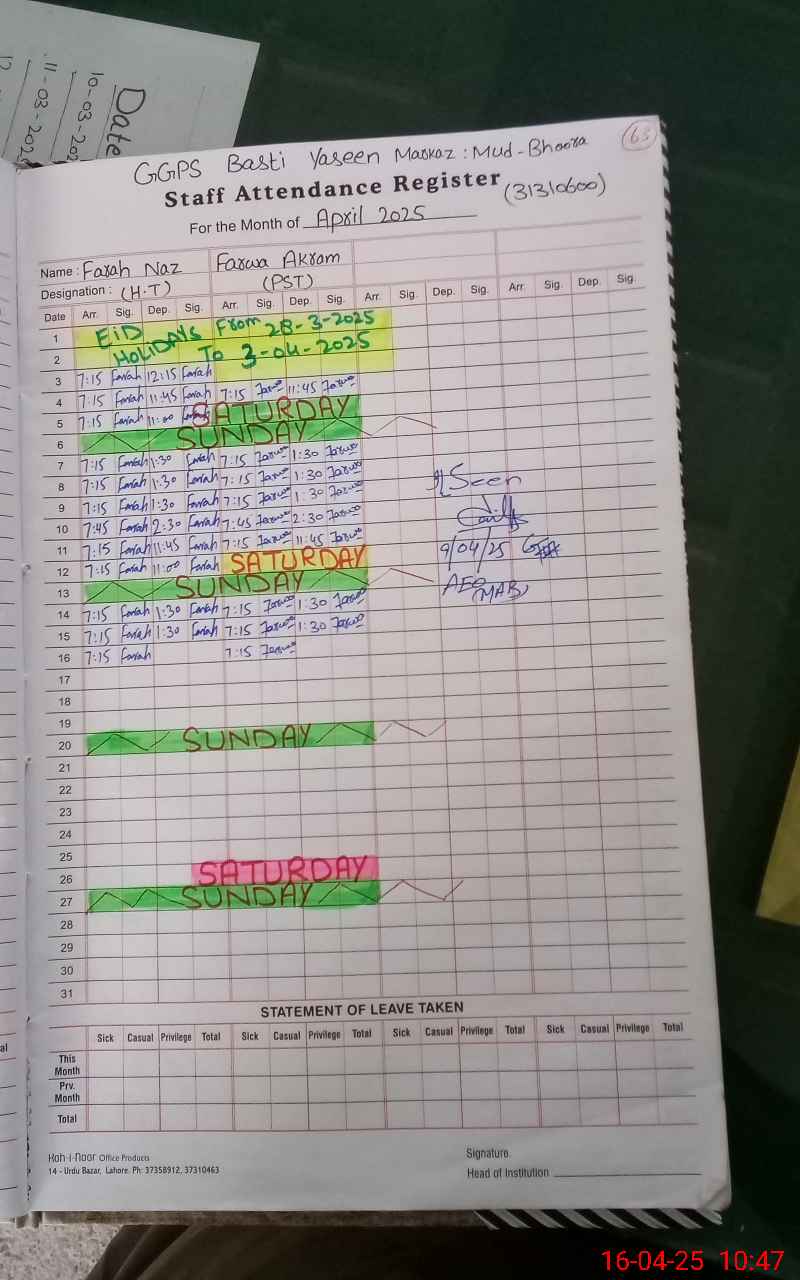 Date
10-03-202
11-03-202
63
GGPS Basti Yaseen Markaz : Mud-Bhoora
Staff Attendance Register (31310600)
For the Month of April 2025
Name : Farah Naz Farwa Akram
Designation : (H.T) (PST)
Date Arr. Sig. Dep. Sig. Arr. Sig. Dep. Sig. Arr. Sig. Dep. Sig. Arr. Sig. Dep. Sig.
1 EiD HOLIDAYS From 28-3-2025
2 To 3-04-2025
3 7:15 Farah 12:15 Farah
4 7:15 Farah 11:45 Farah 7:15 Farwa 11:45 Farwa
5 7:15 Farah 11:00 Farah SATURDAY
6 SUNDAY
7 7:15 Farah 1:30 Farah 7:15 Farwa 1:30 Farwa
8 7:15 Farah 1:30 Farah 7:15 Farwa 1:30 Farwa
9 7:15 Farah 1:30 Farah 7:15 Farwa 1:30 Farwa
10 7:45 Farah 2:30 Farah 7:45 Farwa 2:30 Farwa
11 7:15 Farah 11:45 Farah 7:15 Farwa 11:45 Farwa
12 7:15 Farah 11:00 Farah SATURDAY
13 SUNDAY
14 7:15 Farah 1:30 Farah 7:15 Farwa 1:30 Farwa
15 7:15 Farah 1:30 Farah 7:15 Farwa 1:30 Farwa
16 7:15 Farah 7:15 Farwa
Seen
9/04/25
AEO
(MAB)
17
18
19
20 SUNDAY
21
22
23
24
25
26 SATURDAY
27 SUNDAY
28
29
30
31
STATEMENT OF LEAVE TAKEN
Sick Casual Privilege Total Sick Casual Privilege Total Sick Casual Privilege Total Sick Casual Privilege Total
This Month
Prv. Month
Total
Koh-i-Noor Office Products
14 - Urdu Bazar, Lahore. Ph: 37358912, 37310463
Signature.
Head of Institution
16-04-25 10:47